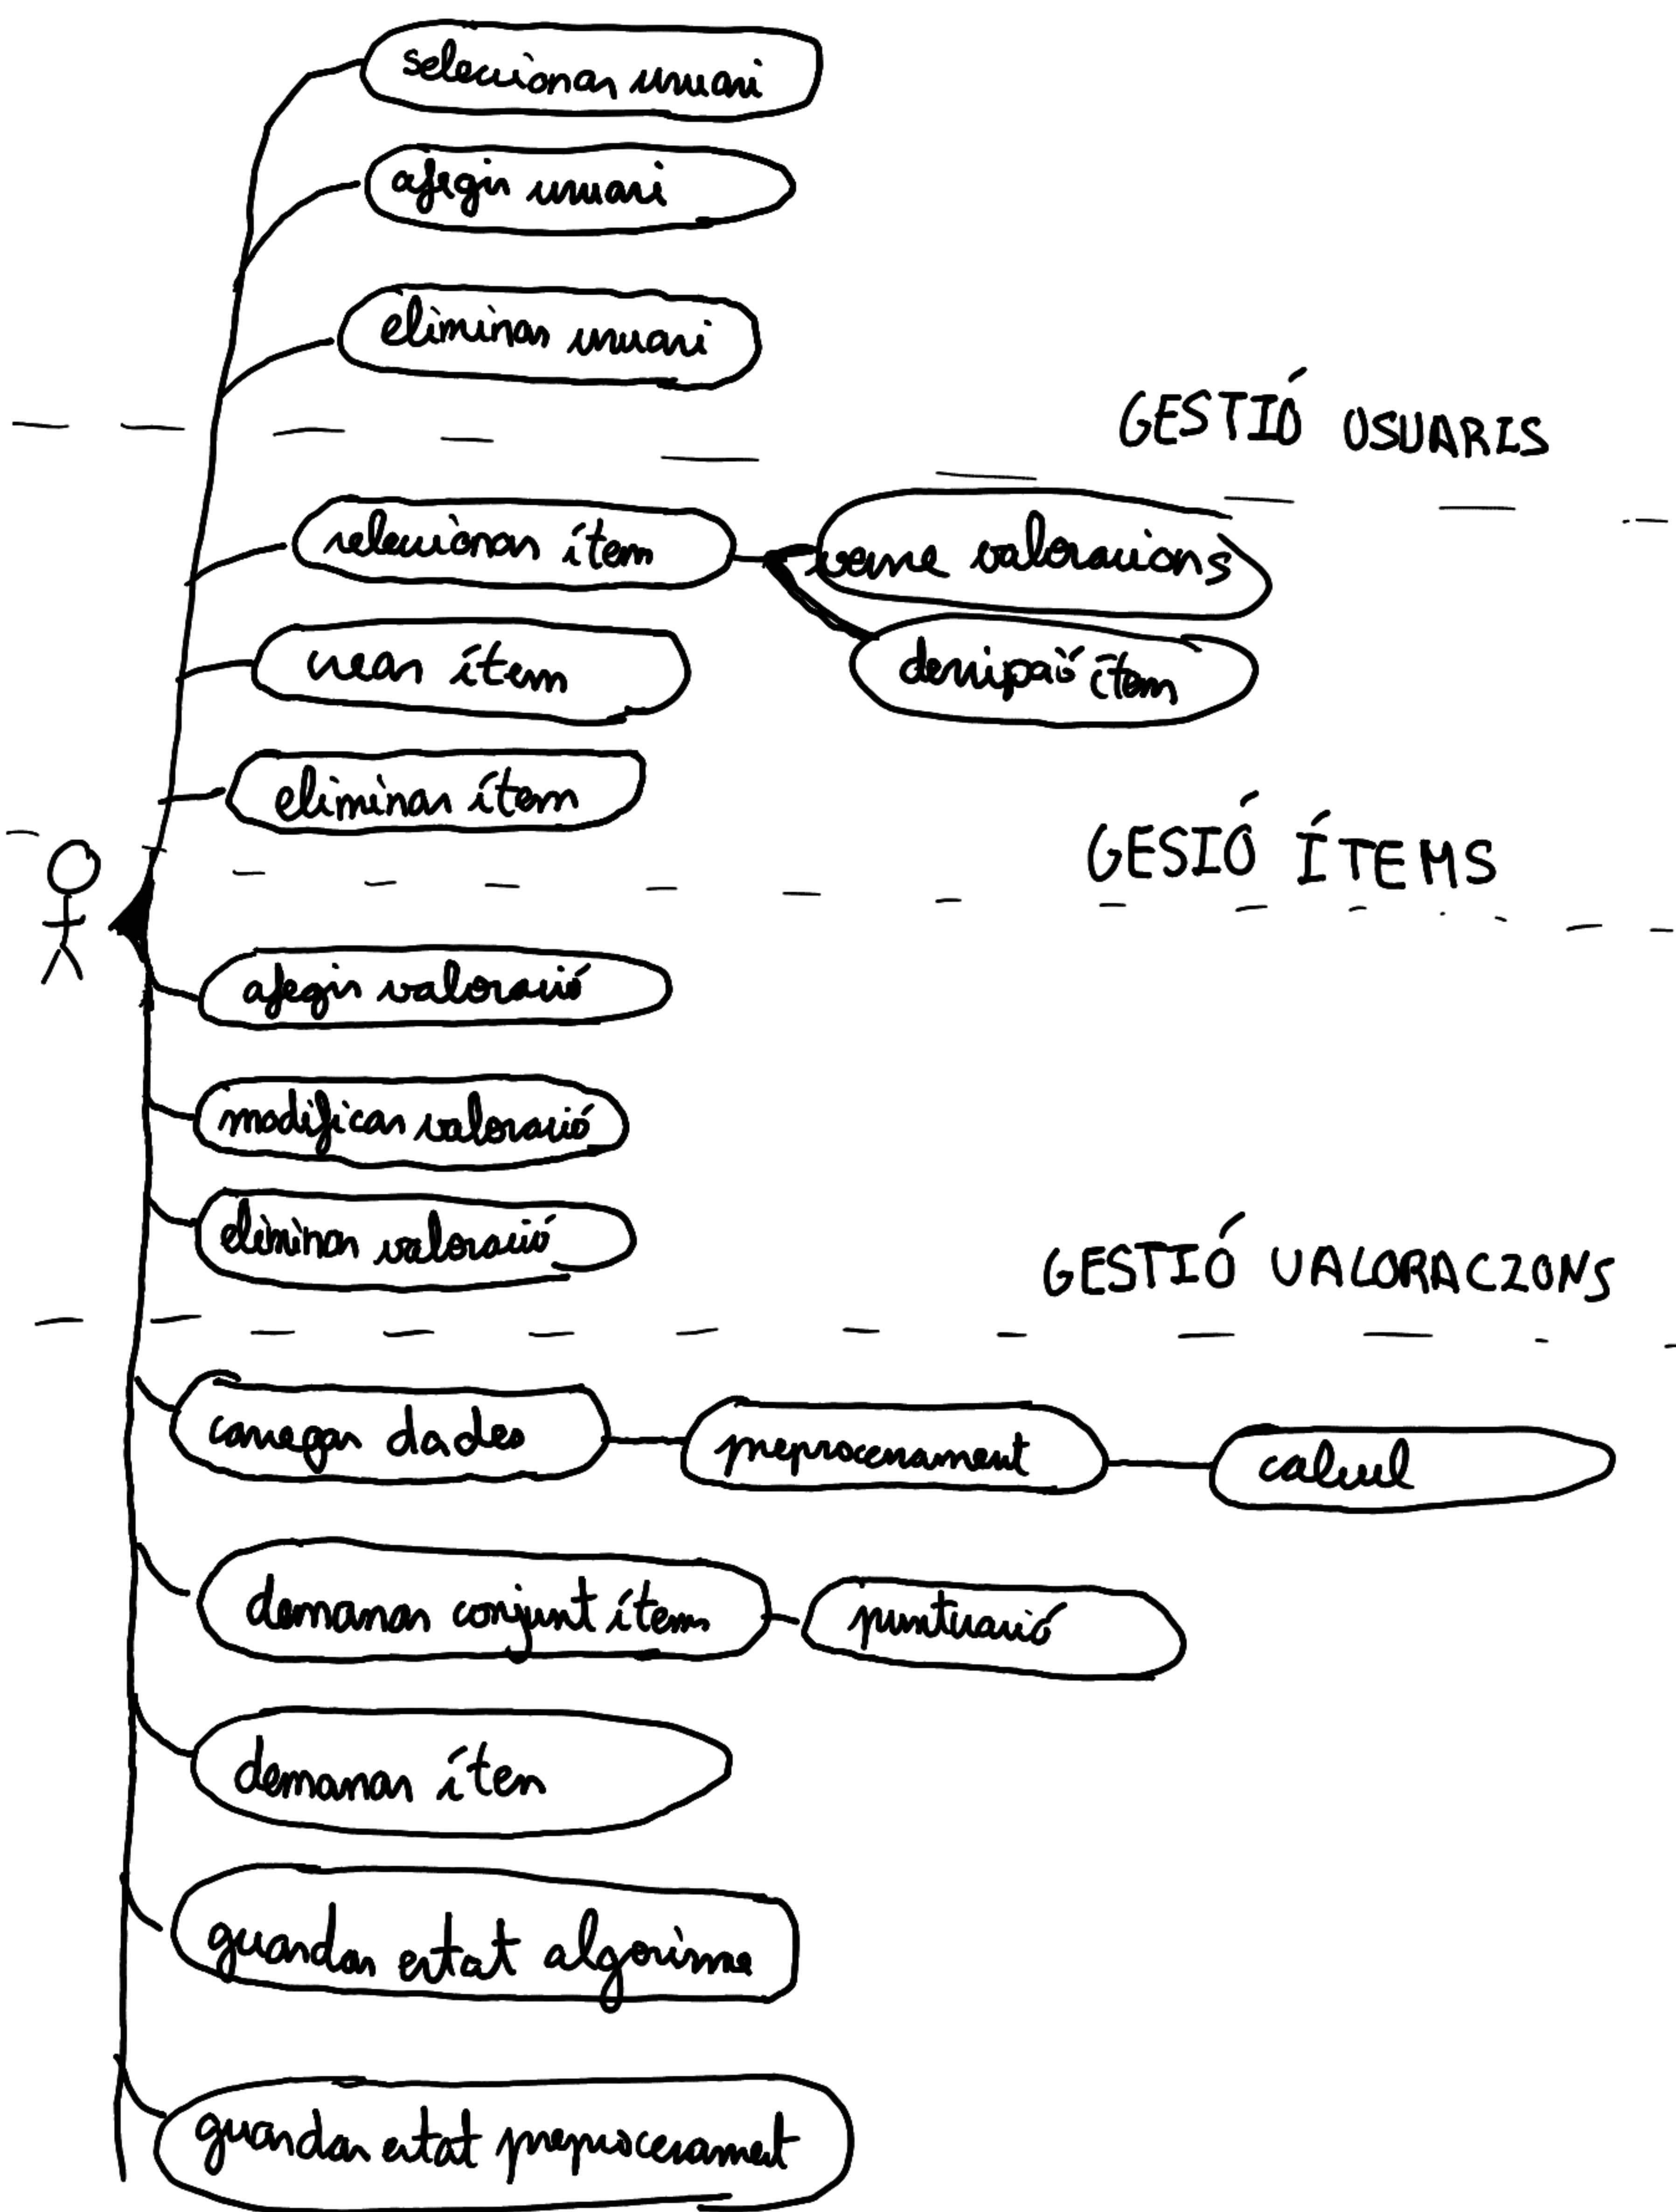 selecionar usuari
afegir usuari
eliminar usuari
GESTIÓ USUARIS
selecionar ítem
veure valoracions
crear ítem
descripció ítem
eliminar ítem
GESIÓ ÍTEMS
afegir valoració
modificar valoració
eliminar valoració
GESTIÓ VALORACIONS
carregar dades
preprocessament
calcul
demanar conjunt ítems
puntuació
demanar ítem
guardar estat algorisme
guardar estat preprocessament